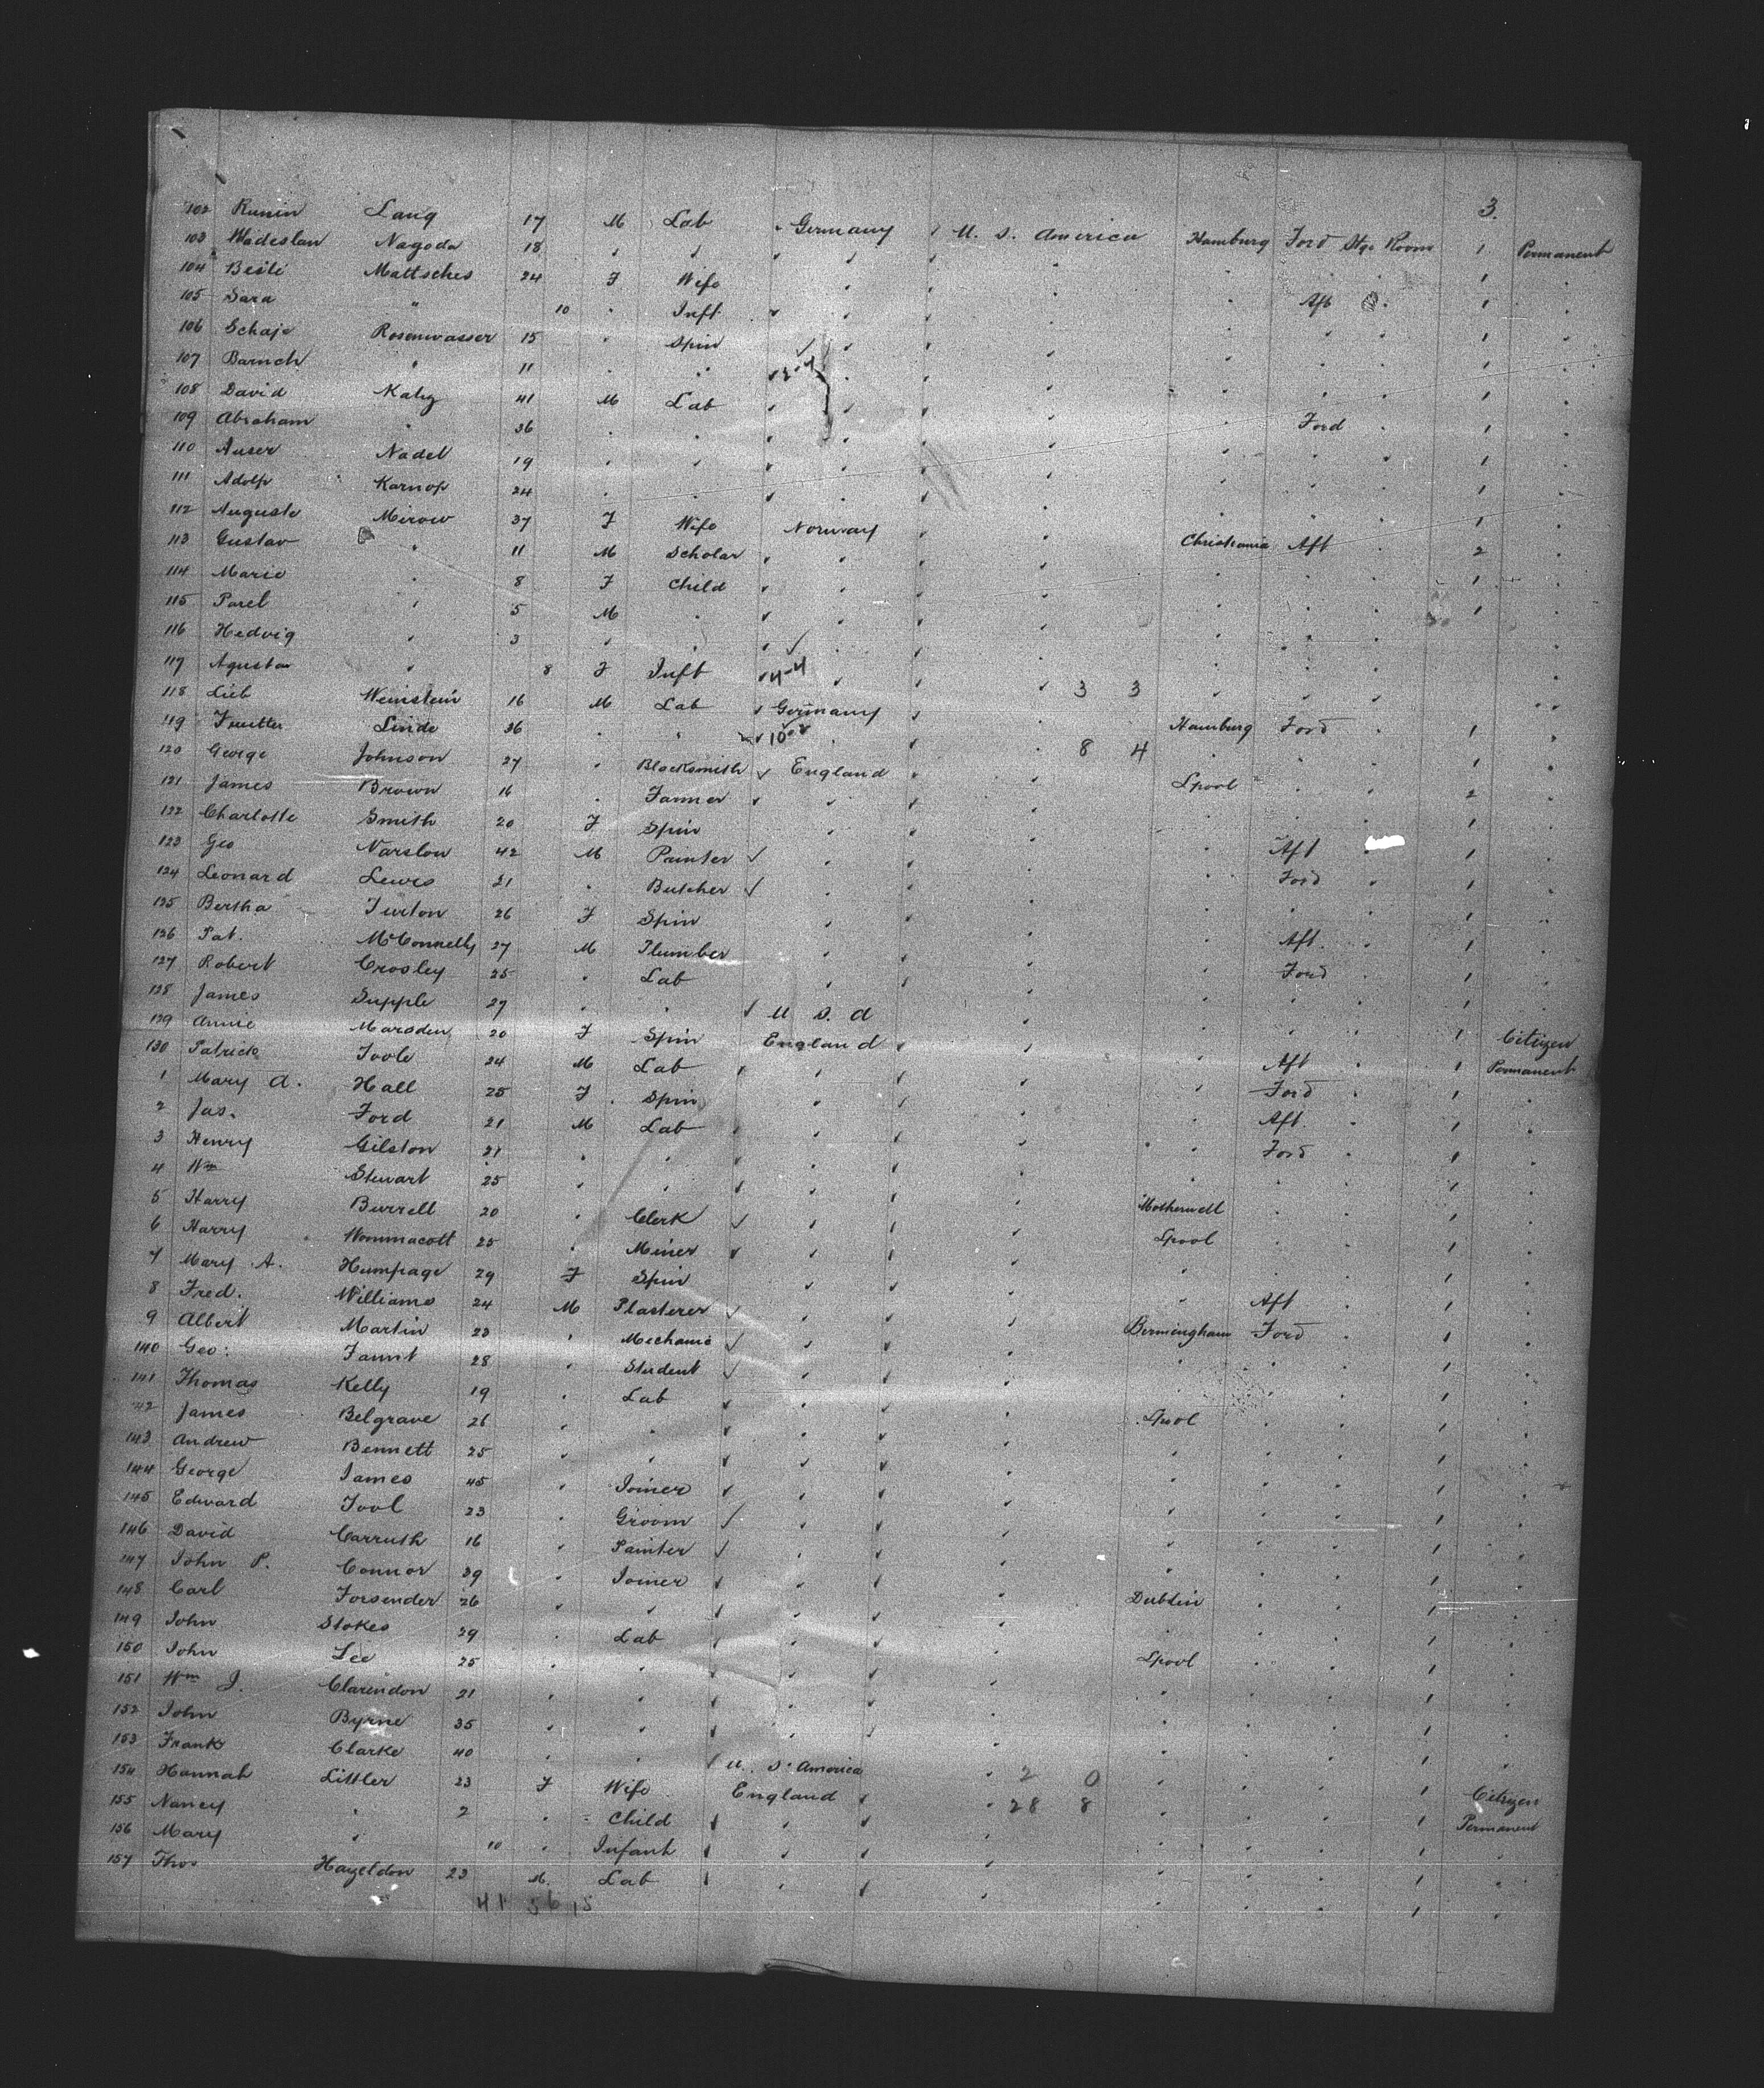 3.
102 Runin Lang 17 M Lab Germany U. S. America Hamburg Ford Stge Room 1 Permanent
103 Wadeslau Nagoda 18 1
104 Beile Mattsches 24 F Wife Aft 1
105 Sara " 10 Inft 1
106 Schaje Rosenwasser 15 Spin 1
107 Baruch " 11 " 2-4 1
108 David Katz 41 M Lab Ford 1
109 Abraham " 36 1
110 Auser Nadel 19 1
111 Adolf Karnop 24 1
112 Auguste Mirow 37 F Wife Norway Christiania Aft 2
113 Gustav " 11 M Scholar 1
114 Marie " 8 F Child 1
115 Parel " 5 M "
116 Hedvig " 3 "
117 Agusta " 8 F Inft 4-4 3 3
118 Lieb Weinstein 16 M Lab Germany Hamburg Ford 1
119 Linde 36 " " 10-2 8 4 1
120 George Johnson 27 " Blacksmith England Lpool 2
121 James Brown 16 " Farmer 1
122 Charlotte Smith 20 F Spin Aft 1
123 Geo Narslow 42 M Painter Ford 1
124 Leonard Lewis 21 " Butcher 1
125 Bertha Turton 26 F Spin Aft 1
126 Pat. McConnelly 27 M Plumber Ford 1
127 Robert Crosley 25 " Lab 1
128 James Supple 27 " " U S. A 1 Citizen
129 Annie Marsden 20 F Spin England Aft 1 Permanent
130 Patrick Toole 24 M Lab Ford 1
1 Mary A. Hall 25 F Spin Aft 1
2 Jas. Ford 21 M Lab Ford 1
3 Henry Gilston 21 " " 1
4 Wm Stewart 25 " " Motherwell 1
5 Harry Burrell 20 " Clerk Lpool 1
6 Harry Wommacott 25 " Miner " 1
7 Mary A. Humpage 29 F Spin " Aft 1
8 Fred. Williams 24 M Plasterer Birmingham Ford 1
9 Albert Martin 23 " Mechanic " 1
140 Geo: Faunt 28 " Student " 1
141 Thomas Kelly 19 " Lab Lpool 1
42 James Belgrave 26 " " " 1
143 Andrew Bennett 25 " " " 1
144 George James 45 " Joiner " 1
145 Edward Tool 23 " Groom " 1
146 David Carruth 16 " Painter " 1
147 John P. Connor 39 " Joiner Dublin 1
148 Carl Forsender 26 " " 1
149 John Stokes 29 " Lab Lpool 1
150 John Lee 25 " " " 1
151 Wm J. Clarendon 21 " " " 1
152 John Byrne 35 " " " 1
153 Frank Clarke 40 " " U. S. America 2 0 " 1 Citizen
154 Hannah Littler 23 F Wife England 28 8 " 1 Permanent
155 Nancy " 2 " Child " 1
156 Mary " 10 " Infant " 1
157 Thos Hazeldon 23 M. Lab " 1
41 56 15